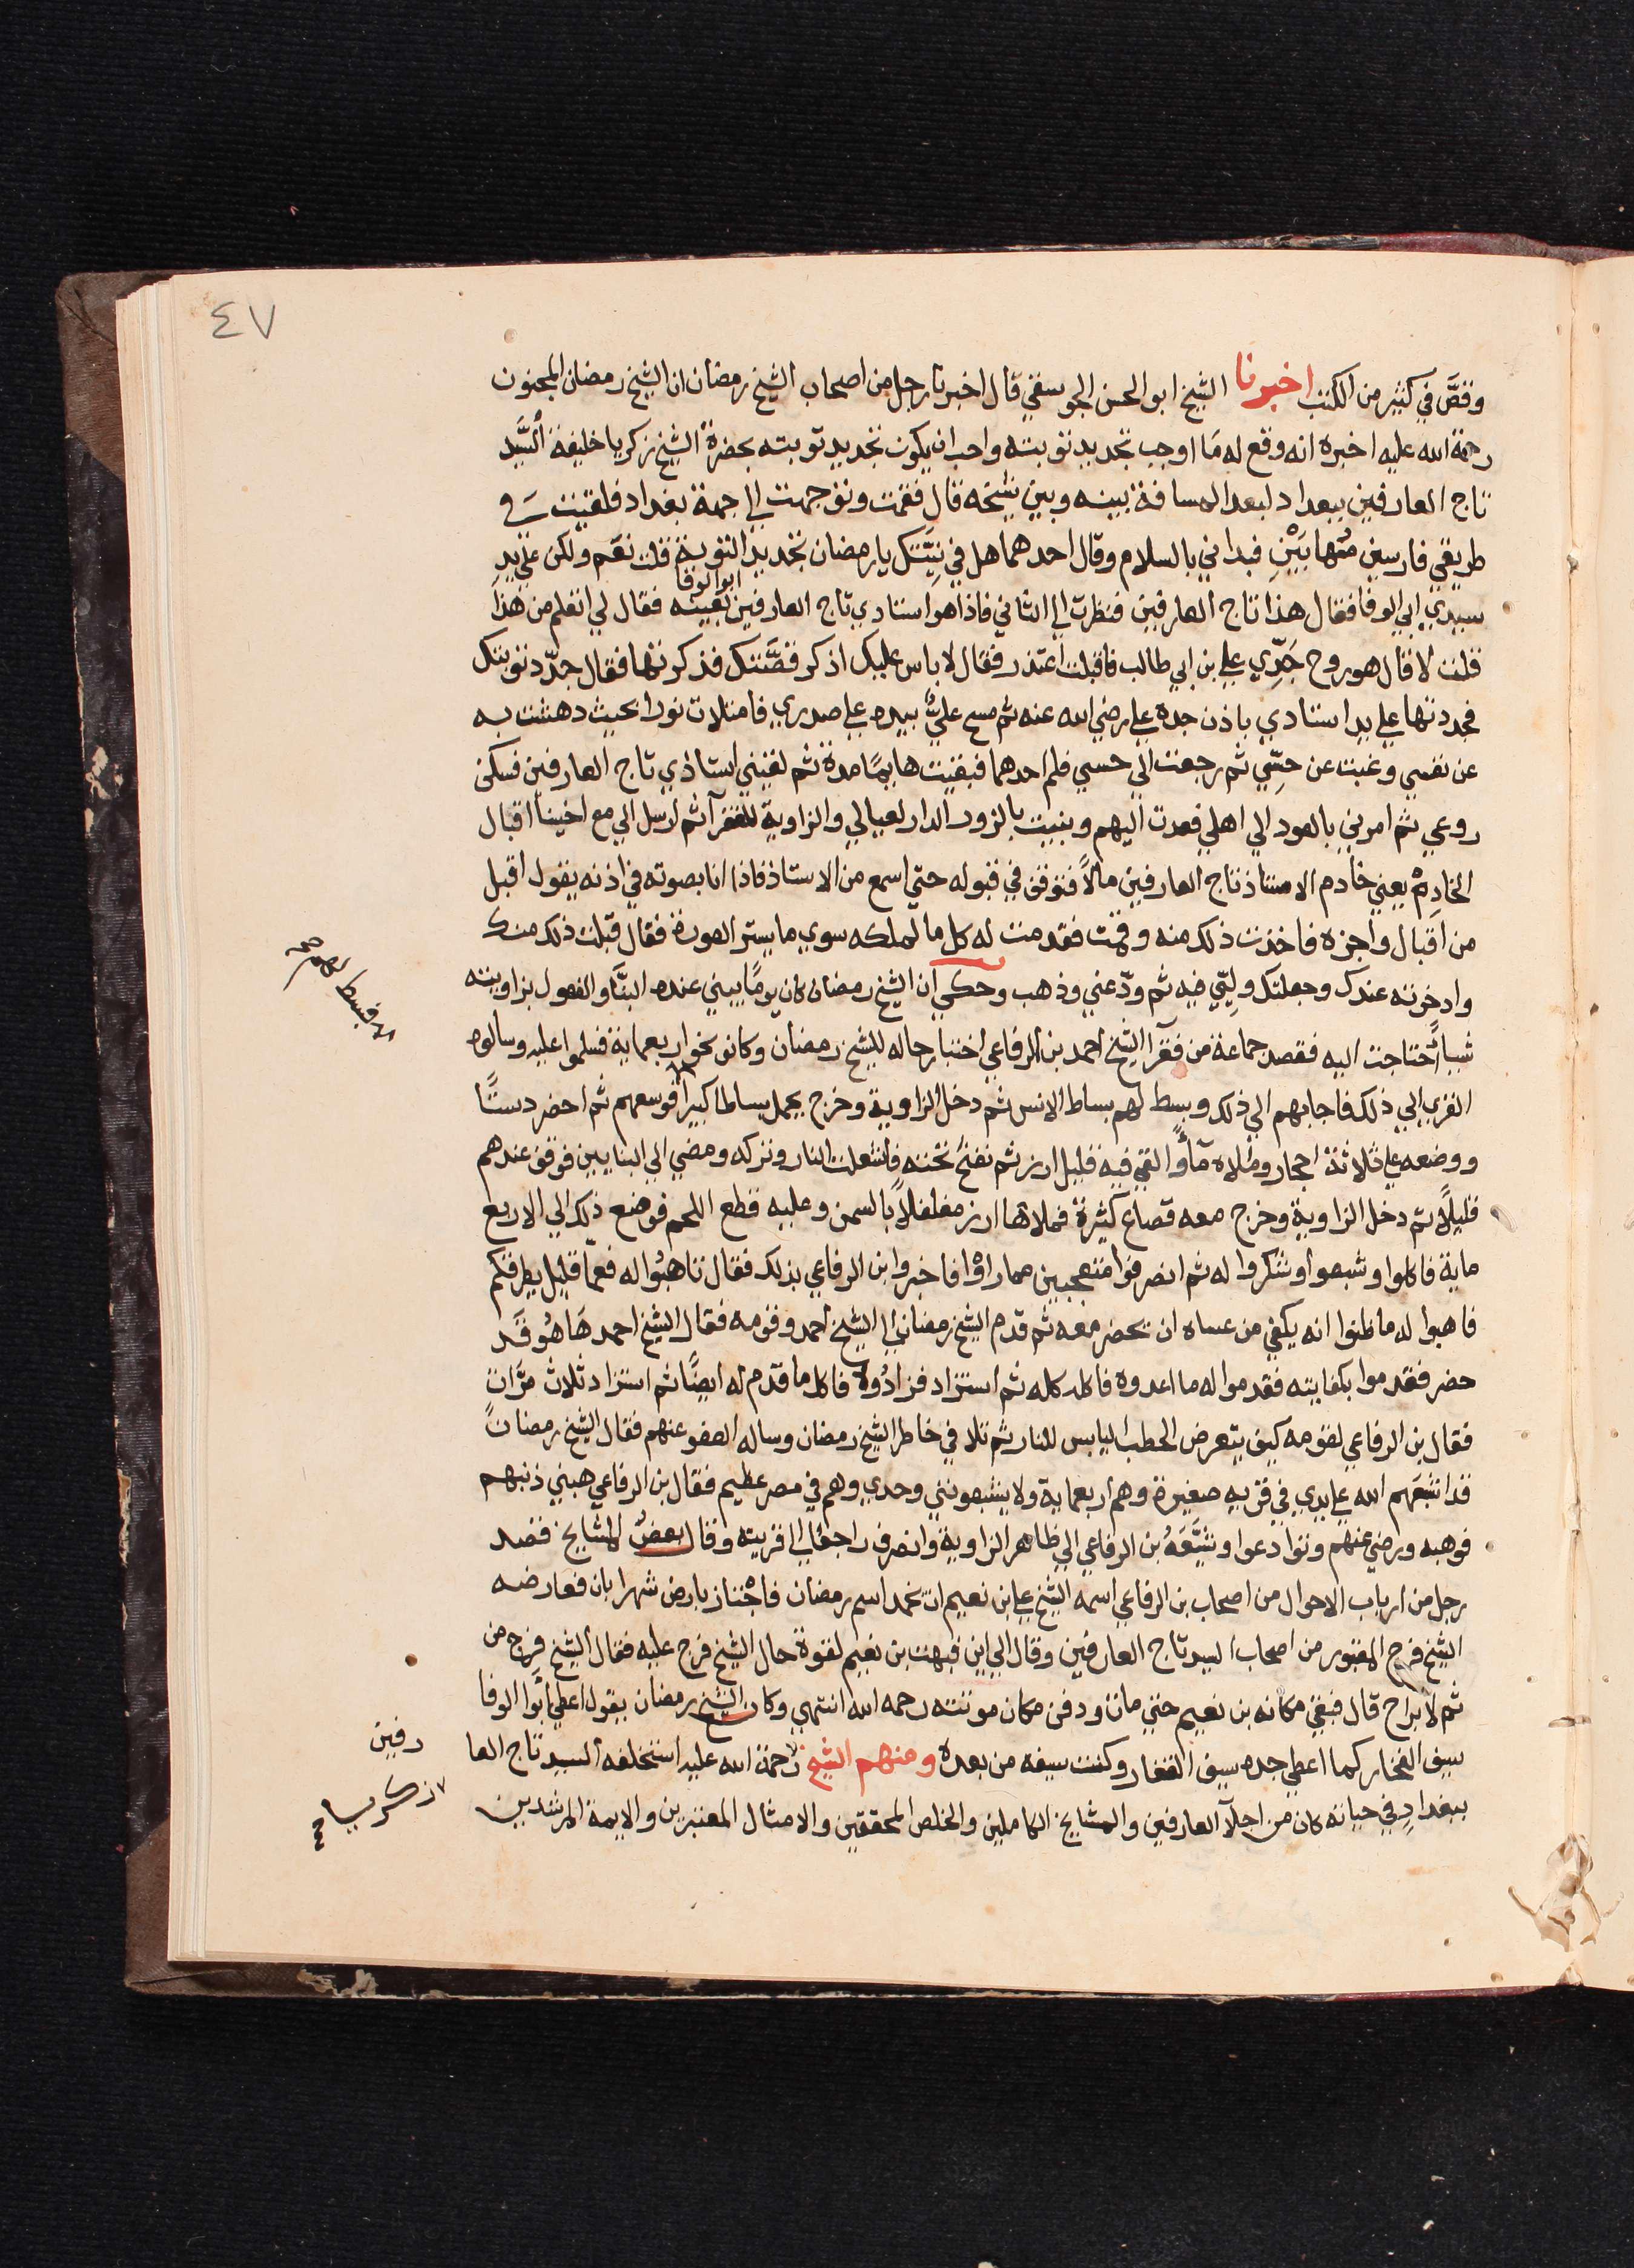 ٤٧
وقصَّ في كثير من الكتب اخبرنا الشيخ ابو الحسن الجوسقي قال اخبرنا رجل من اصحاب الشيخ رمضان ان الشيخ رمضان المجنون
رحمة الله عليه اخبره انه وقع له مَا اوجب تجديد توبته واحب ان يكون تجديد توبته بحضرة الشيخ زكريا خليفة السَّيد
تاج العارفين ببعداد لبعد المسافة بينه وبين شيخه قال فقمت وتوجهت الي جهة بغداد فلقيت في
طريقي فارسين مُتهابَيْنِ فبداني بالسلام وقال احدهما هل في نِيَّتك يا رمضان تجديد التوبة قلت نعَم ولكن علي يد
سيدي ابي الوفا فقال هذا تاج العارفين فنظرت الي الثاني فاذا هو استادي تاج العارفين ابو الوفا بعينه فقال لي اتعلم من هذا
قلت لا قال هو روح جَدِّي علي بن ابي طالب فاقبلت اعتذر فقال لا باس عليك اذكر قصَّتك فذكرتها فقال جدّد توبتك
فجددتها علي يد استادي باذن جده علي رضي الله عنه ثم مسح عليٌّ بيده علي صدري فامتلات نورا بحيث دهشت به
عن نفسي وغبت عن حِسّي ثم رجعت الي حسي فلم اجدهما فبقيت هايمًا مدة ثم لقيني استاذي تاج العارفين فسكن
روعي ثم امرني بالعود الي اهلي فعدت اليهم وبنيت بالزور الدار لعيالي والزاوية للفقرآ ثم ارسل الي مع اخينا اقبال
الخادِم يعني خادم الاستاذ تاج العارفين مالاً فتوقف في قبوله حتي اسمع من الاستاذ فاذا انا بصوته في اذنه يقول اقبل
من اقبال واجزه فاخذت ذلك منه وقمت فقدمت له كل ما املكه سوي ما يستر العورة فقال قبلت ذلك منك
وادخرته عندك وجعلتك وليّي فيه ثم ودّعني وذهب وحكي ان الشيخ رمضان كان يومًا يبني عنده البنَّاوالفعول بزاويته
شيئا احتاجت اليه فقصد جماعة من فقرآ الشيخ احمد بن الرفاعي اختبار حاله للشيخ رمضان وكانو نحو اربعماية فسلموا عليه وسالوه
القري الي ذلك فاجابهم الي ذلك وبسط لهم بساط الانس ثم دخل الزاوية وخرج يحمل بساطا كبيرا فوسعهم ثم احضر دستًا
ووضعه علي ثلاثة احجار وملاه مآً والقي فيه قليل ارز ثم نفخ تحته فاشتعلت النار وتركه ومضي الي البنايين فوقف عندهم
قليلًا ثم دخل الزاوية وخرج معه قصاع كثيرة فملاها ارز مفلفلاً بالسمن وعليه قطع اللحم فوضع ذلك الي الاربع
ماية فاكلوا وشبعوا وشكروا له ثم انصرفوا متعجبين مما راوْا فاخبروا ابن الرفاعي بذلك فقال تاهبُوا له فعمّا قليل يطرقكم
فاهبوا له ما ظنوا انه يكفي من عساه ان يحضر معه ثم قدم الشيخ رمضان الي الشيخ احمد وقومه فقال الشيخ احمد هَا هُو قَد
حضر فقدموا بكفايته فقدموا له ما اعدوه فاكله كله ثم استزاد فزادُوه فاكل ما قدم له ايضًا ثم استزاد ثلاث مرَّات
فقال بن الرفاعي لقومه كيف يتعرض الحطب اليابس للنار ثم تلا في خاطر الشيخ رمضان وساله العفو عنهم فقال الشيخ رمضان
قد اشبَعهم الله علي يدي في قريه صغيرة وهم اربعماية ولا يشبعونني وحدي وهم في مصر عظيم فقال بن الرفاعي هبني ذنبهم
فوهبه ورضي عنهم وتوادَعوا وشيَّعَهُ بن الرفاعي الي ظاهر الزاوية وانصرف راجعًا الي قريته وقال بعض المشايخ قصد
رجل من ارباب الاحوال من اصحاب بن الرفاعي اسمه الشيخ علي بن نعيم ان يخمد اسم رمضان فاجتاز بارض شهرابان فعارضه
الشيخ فرج المقبور من اصحاب السيد تاج العارفين وقال الي اين فبهت بن نعيم لقوة حال الشيخ فرج عليه فقال الشيخ فرج من
ثم لا براح قال فبقي مكانه بن نعيم حتي مات ودفن مكان موتته رحمه الله انتهي وكان الشيخ رمضان يقول اعطي ابُو الوفا
سيف الفخار كما اعطي جده سيف الفقار وكنت سيفه من بعده ومنهم الشيخ رحمة الله عليه استخلفه السيد تاج العا
رفين
زكريا
ببغدادِ في حياته كان من اجلآ العارفين والمشايخ الكاملين والخلص المحققين والامثال المعتبرين والايمة المرشدين